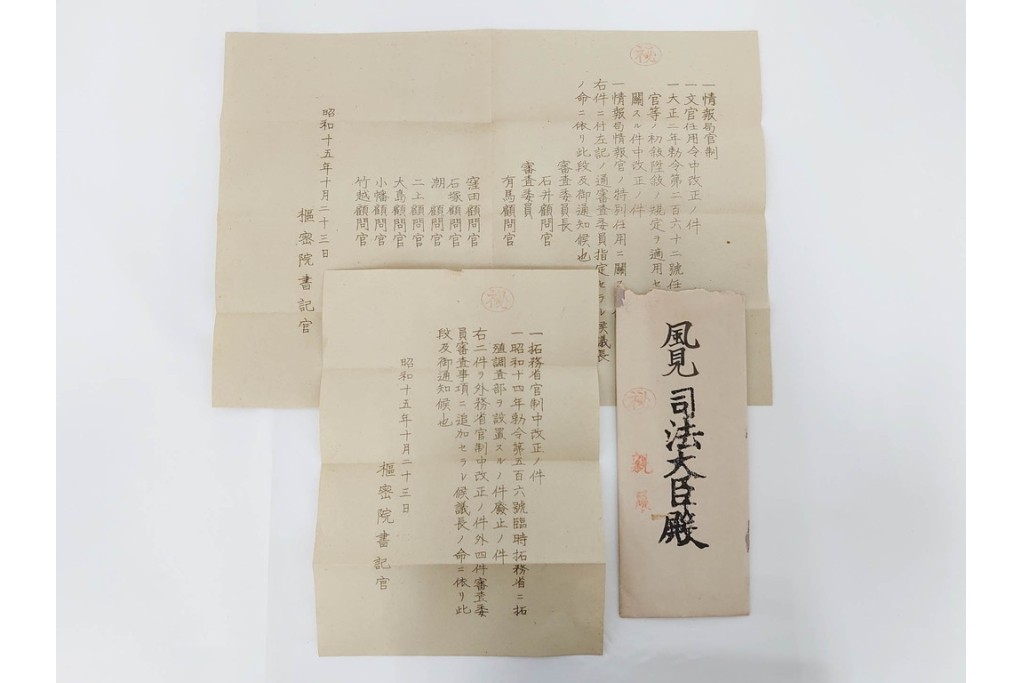 ㊙
一情報局官制
一文官任用令中改正ノ件
一大正二年勅令第二百六十二號任
官等ノ初敍陞敍ノ規定ヲ適用セ
關スル件中改正ノ件
一情報局情報官ノ特別任用ニ關
右件ニ付左記ノ通審査委員指定セラレ候議長
ノ命ニ依リ此段及御通知候也
審査委員長
石井顧問官
審査委員
有馬顧問官
窪田顧問官
石塚顧問官
潮顧問官
二上顧問官
大島顧問官
小幡顧問官
竹越顧問官
昭和十五年十月二十三日
樞密院書記官
㊙
一拓務省官制中改正ノ件
一昭和十四年勅令第五百六號臨時拓務省ニ拓
殖調査部ヲ設置スルノ件廢止ノ件
右二件ヲ外務省官制中改正ノ件外四件審査委
員審査事項ニ追加セラレ候議長ノ命ニ依リ此
段及御通知候也
昭和十五年十月二十三日
樞密院書記官
風見司法大臣殿
㊙
親展